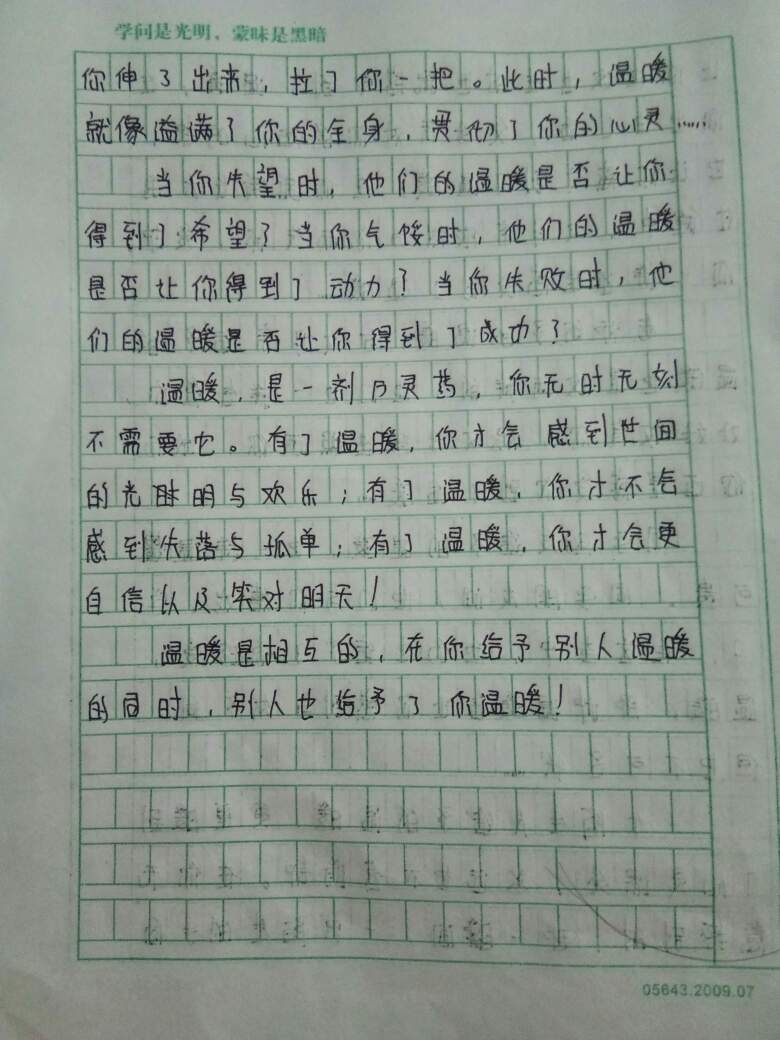 学问是光明，蒙昧是黑暗
你伸了出来，拉了你一把。此时，温暖
就像溢满了你的全身，贯彻了你的心灵……
当你失望时，他们的温暖是否让你
得到了希望？当你气馁时，他们的温暖
是否让你得到了动力？当你失败时，他
们的温暖是否让你得到了成功？
温暖，是一剂万灵药，你无时无刻
不需要它。有了温暖，你才会感到世间
的光明与欢乐；有了温暖，你才不会
感到失落与孤单；有了温暖，你才会更
自信以及笑对明天！
温暖是相互的，在你给予别人温暖
的同时，别人也给予了你温暖！
05643.2009.07